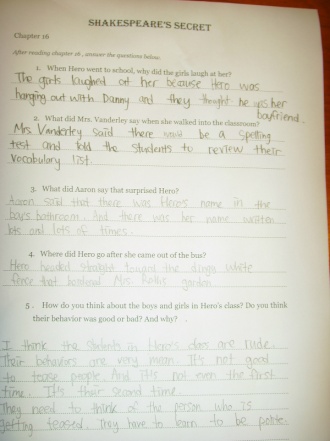 SHAKESPEARE'S SECRET
Chapter 16
After reading chapter 16, answer the questions below.
1. When Hero went to school, why did the girls laugh at her?
The girls laughed at her because Hero was
hanging out with Danny and they thought he was her
boyfriend.
2. What did Mrs. Vanderley say when she walked into the classroom?
Mrs. Vanderley said there would be a spelling
test and told the students to review their
vocabulary list.
3. What did Aaron say that surprised Hero?
Aaron said that there was Hero's name in the
boy's bathroom. And there was her name written
lots and lots of times.
4. Where did Hero go after she rame out of the bus?
Hero headed straight toward the dingy white
fence that bordered Mrs. Roths garden
5. How do you think about the boys and girls in Hero's class? Do you think
their behavior was good or bad? And why?
I think the students in Hero's class are rude.
Their behaviors are very mean. It's not good
to tease people. And it's not even the first
time. It's their second time.
They need to think of the person who is
getting teased. They have to learn to be polite.